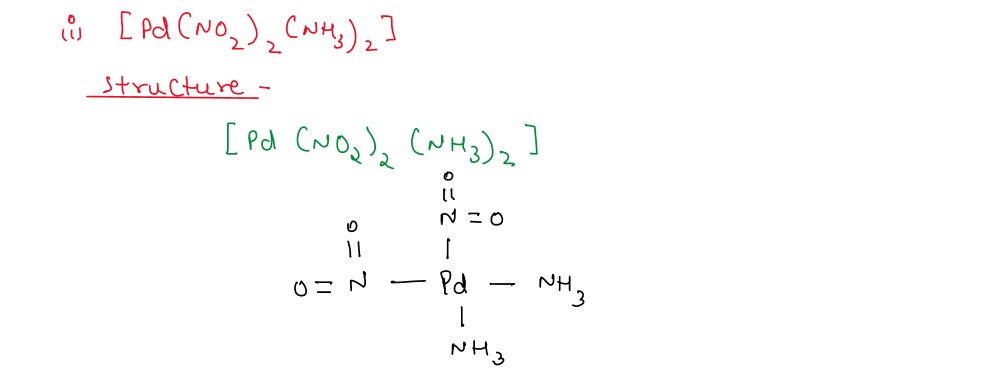 (i) [Pd(NO2)2(NH3)2]
structure -
[Pd (NO2)2 (NH3)2]
O
||
N = O
O
||
|
O = N — Pd — NH3
|
NH3